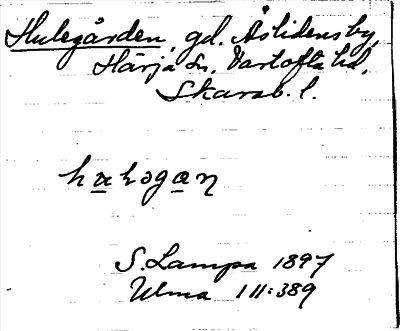 Hulegården, gd. Åslidens by,
Härja sn. Vartofta hd,
Skarab. l.
S. Lampa 1897
Ulma 111:389